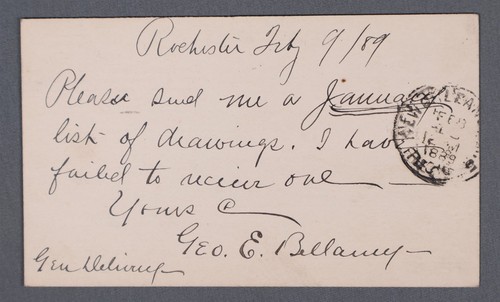 Rochester Feby 9/89
Please send me a January
list of drawings. I have
failed to recieve one
Yours &
Geo. E. Bellamy
Gen Delivery
NEW ORLEANS
FEB
1889